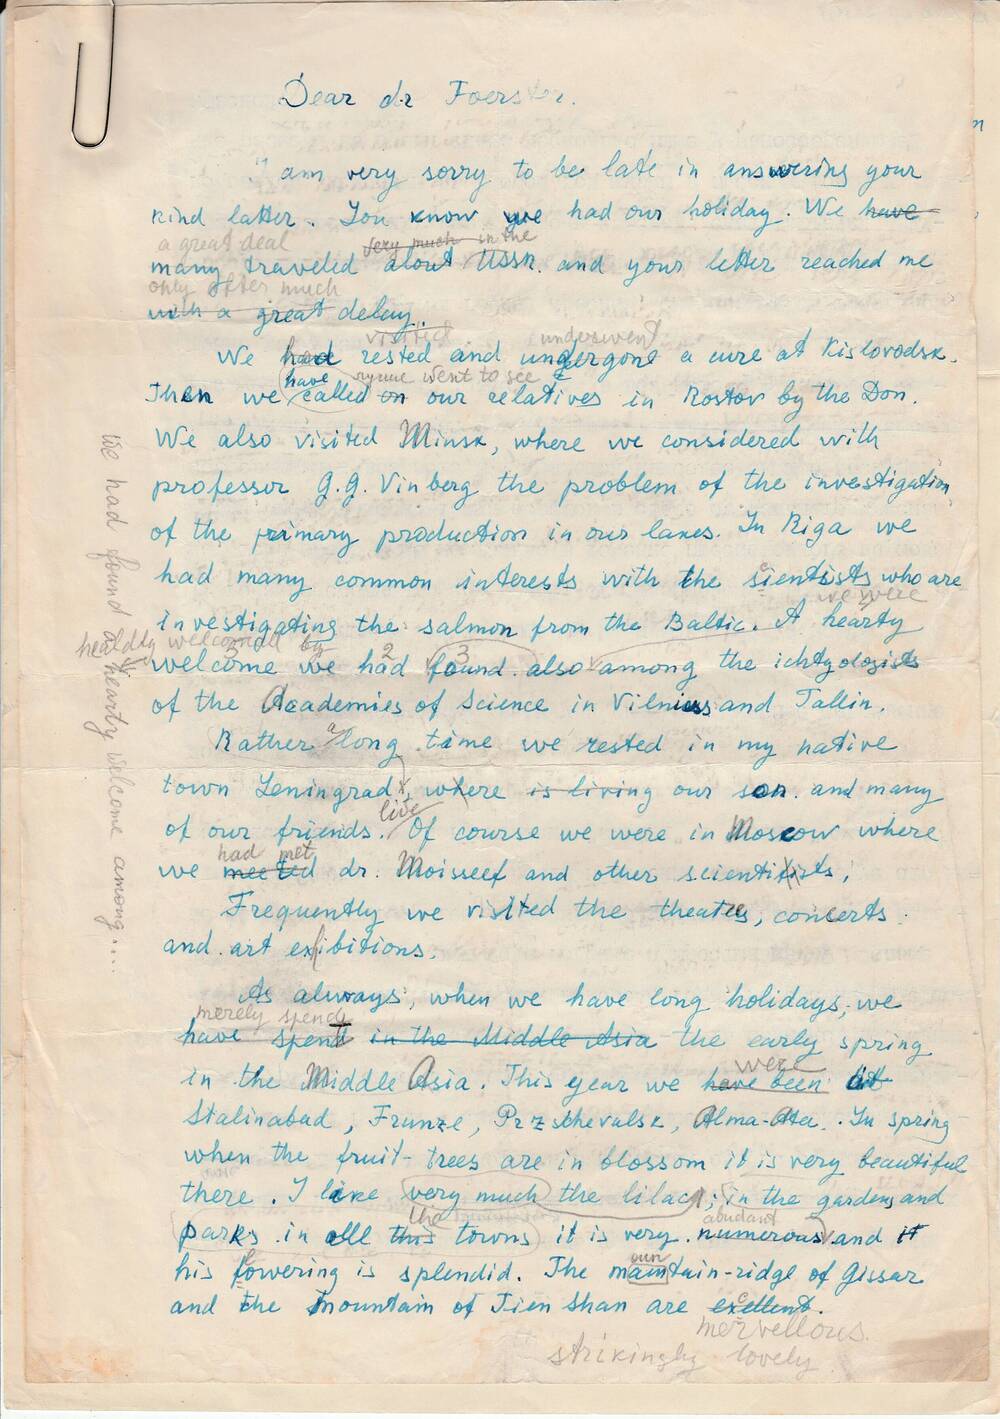 Dear dr Foerster.
I am very sorry to be late in answering your
kind latter. You know we had our holiday. We have
a great deal very much in the
many traveled about USSR. and your letter reached me
only after much
with a great delay.
visited underwent
We had rested and undergone a cure at Kislovodsk.
have went to see
Then we called on our relatives in Rostov by the Don.
We also visited Minsk, where we considered with
professor G.G. Vinberg the problem of the investigation
of the primary production in our lakes. In Riga we
had many common interests with the scientists who are
we were
investigating the salmon from the Baltic. A hearty
welcomed by 2 3
welcome we had found also among the ichtyologists
of the Academies of Science in Vilnius and Tallin.
Rather a long time we rested in my native
town Leningrad, where is living our son. and many
live
of our friends. Of course we were in Moscow where
had met
we meeted dr. Moisseef and other scientists.
Frequently we visited the theatres, concerts
and art exibitions.
As always, when we have long holidays, we
merely spend
have spent in the Middle Asia the early spring
were
in the Middle Asia. This year we have been at
Stalinabad, Frunze, Przschevalsk, Alma-Ata. In spring
when the fruit-trees are in blossom it is very beautiful
there. I like very much the lilac; in the gardens and
the abudant
parks in all this towns it is very numerous and it
his fowering is splendid. The mountain-ridge of Gissar
and the mountain of Tien Shan are excellent.
mervellous.
strikingly lovely
we had found a hearty welcome among...